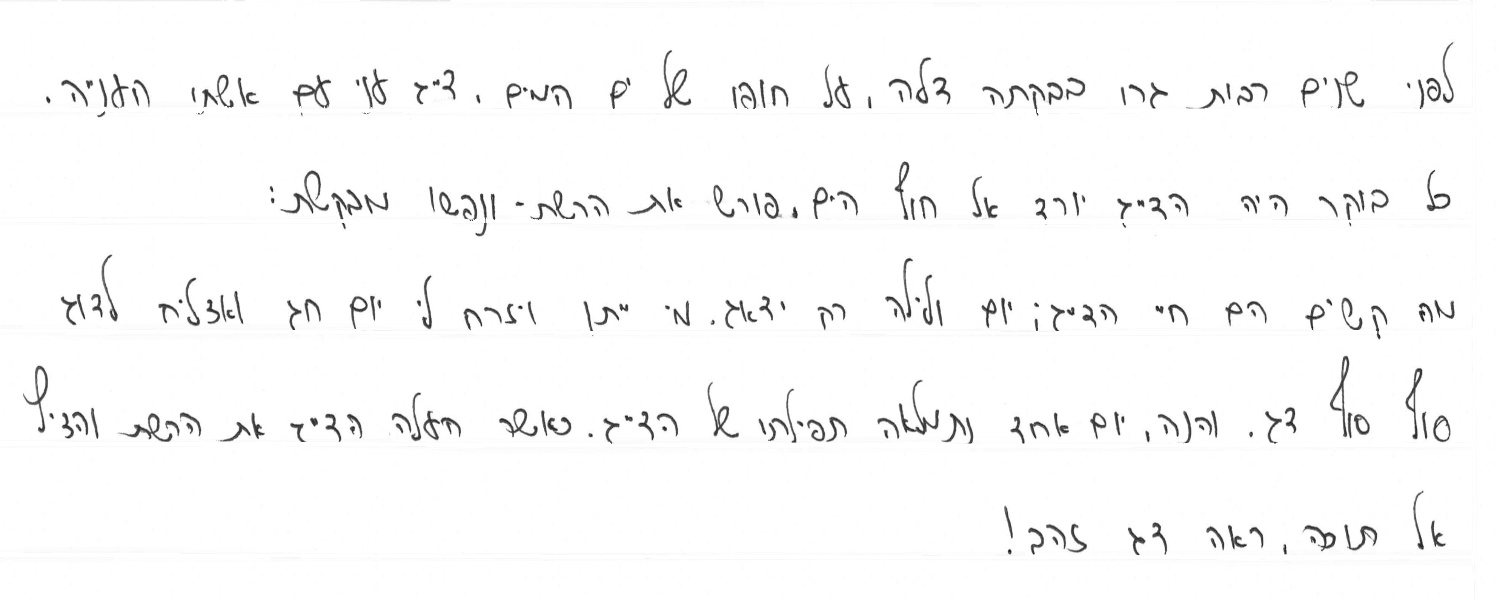 לפני שנים רבות גרו בבקתה דלה, על חופו של ים המים, דייג עני עם אשתו הענייה.
כל בוקר היה הדייג יורד אל חוף הים, פורש את הרשת - ונפשו מבקשת:
מה קשים הם חיי הדייג; יום ולילה רק ידאג. מי ייתן ויזרח לי יום חג ואצליח לדוג
סוף סוף דג. והנה, יום אחד נתמלאה תפילתו של הדייג. כאשר העלה הדייג את הרשת והציץ
אל תוכה, ראה דג זהב!